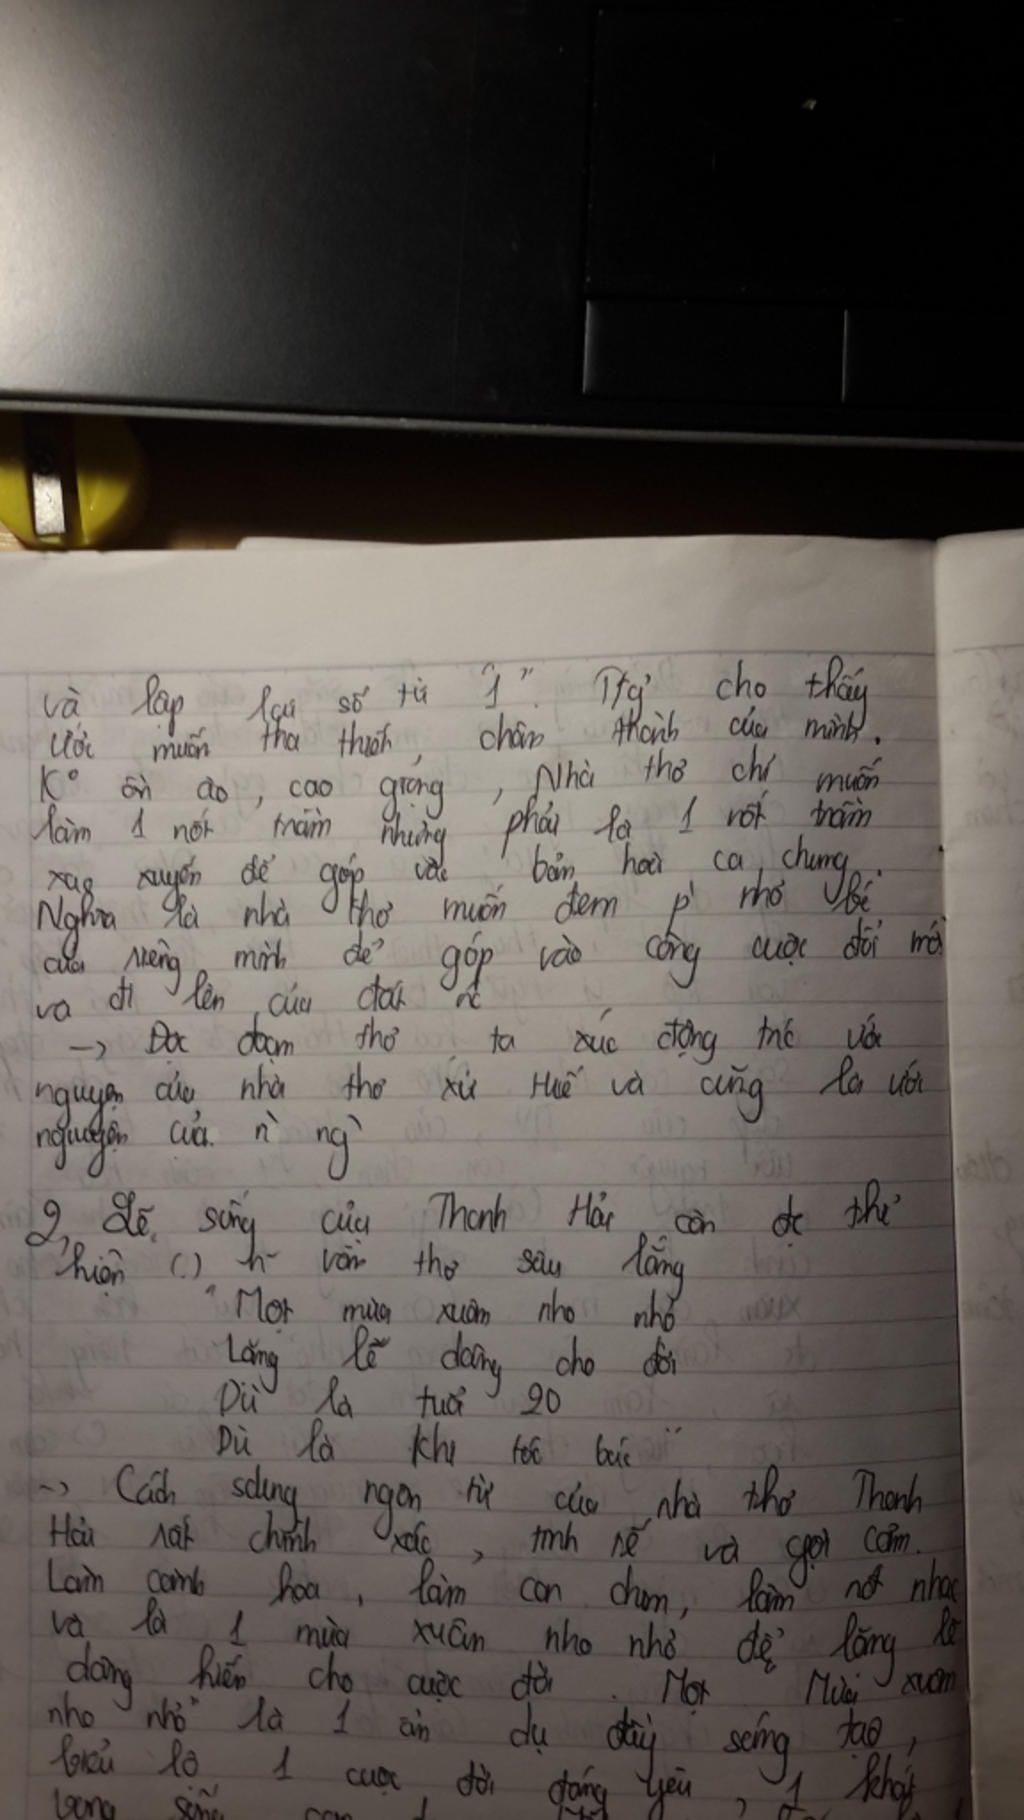 và lặp lại số từ "1". Tgỉ cho thấy
ước muốn tha thiết, chân thành của mình.
K° ồn ào, cao giọng, Nhà thơ chỉ muốn
làm 1 nốt trầm nhưng phải là 1 nốt trầm
xao xuyến để góp vào bản hoà ca chung.
Nghĩa là nhà thơ muốn đem p' nhỏ bé
của riêng mình để góp vào công cuộc đổi mới
và đi lên của đất nc
-> Đọc đoạn thơ ta xúc động trc ước
nguyện của nhà thơ xứ Huế và cũng là ước
nguyện của n` ng`
2, Lẽ sống của Thanh Hải còn đc thể
hiện (.) ~ vần thơ sâu lắng
"Một mùa xuân nho nhỏ
Lặng lẽ dâng cho đời
Dù là tuổi 20
Dù là khi tóc bạc"
-> Cách sdụng ngôn từ của nhà thơ Thanh
Hải rất chính xác, tinh tế và gợi cảm.
Làm cành hoa, làm con chim, làm nốt nhạc
và là 1 mùa xuân nho nhỏ để lặng lẽ
dâng hiến cho cuộc đời. Một Mùa xuân
nho nhỏ" là 1 ẩn dụ đầy sáng tạo,
biểu lộ 1 cuộc đời đáng yêu, 1 khát
vọng sống